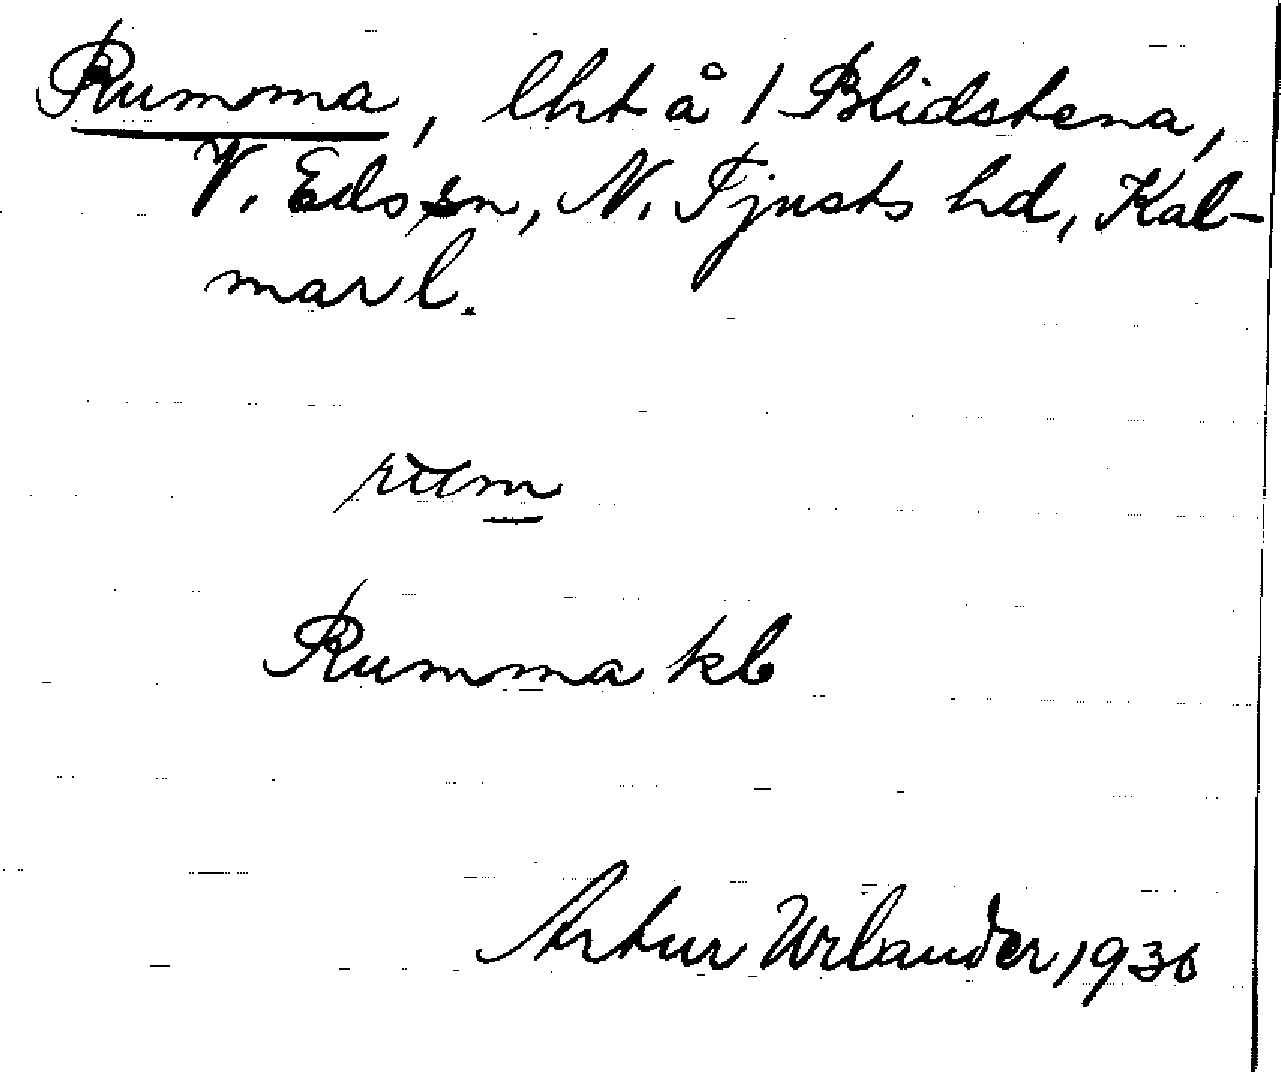 Rumma, lht å 1 Blidstena,
V. Eds sn, N. Tjusts hd, Kal-
mar l.
rum
Rumma kb
Artur Urlander, 1930